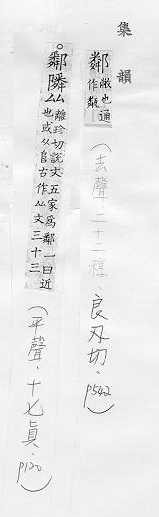 集韻
鄰敝也通
作甐
(去聲.二十二稕.良刃切.p542)
○鄰隣厸離珍切說文五家爲鄰一曰近
也或从𨸏古作厸文三十三
(平聲.十七真.p120)